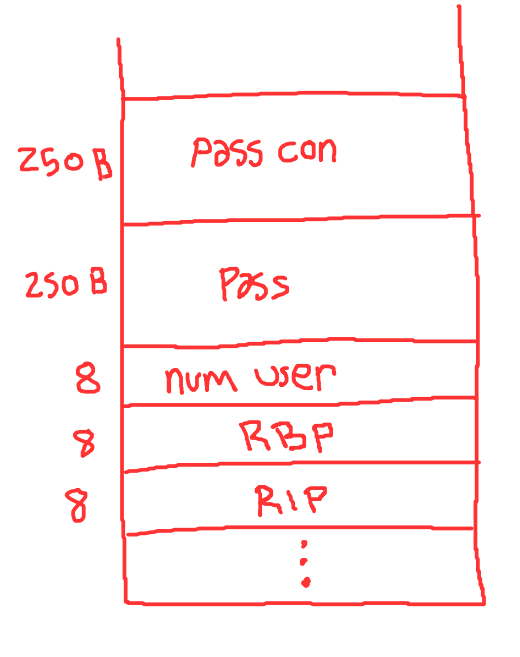 250 B Pass con
250 B Pass
8 num user
8 RBP
8 RIP